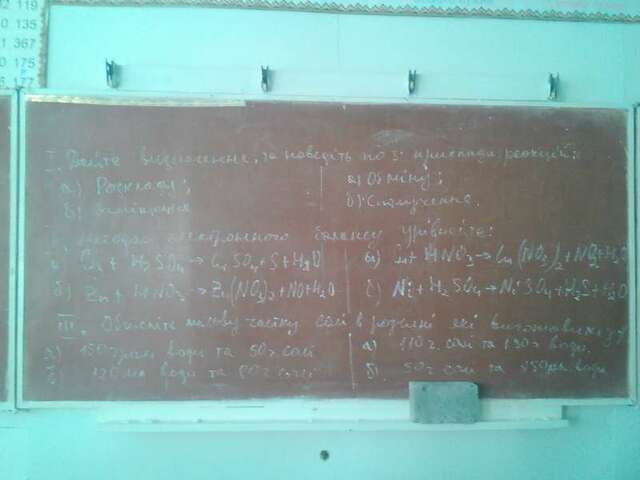 12 119
0 135
1 367
0 175
5 177
I. Дайте визначення, та наведіть по 3 приклади реакцій:
а) Розкладу; а) Обміну;
б) заміщення б) Сполучення.
Методом електронного балансу урівняйте:
+ H2SO4 → SO4 + S + H2O + HNO3 → (NO3)2 + NO2 + H2O
б) Zn + HNO3 → Zn(NO3)2 + NO + H2O б) Ni + H2SO4 → NiSO4 + H2S + H2O
III. Обчисліть масову частку солі в розчині які виготовили з
а) 150 грам води та 50 г солі а) 110 г. солі та 190 г води.
б) 120 мл води та 80 г солі б) 50 г солі та 450 мл води